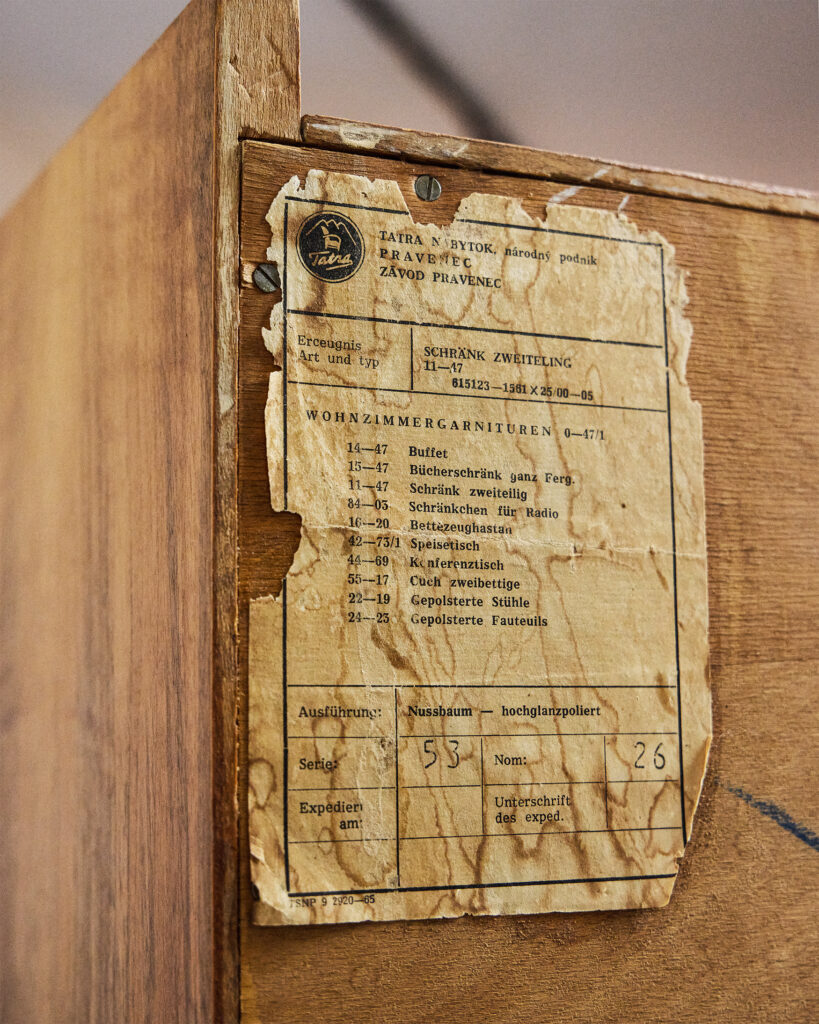 Tatra
TATRA N BYTOK, národný podnik
PRAVENEC
ZÁVOD PRAVENEC
Erceugnis
Art und typ
SCHRÄNK ZWEITELING
11—47
615123—1561 X 25/00—05
WOHNZIMMERGARNITUREN 0—47/1
14—47 Buffet
15—47 Bücherschränk ganz Ferg.
11—47 Schränk zweiteilig
84—03 Schränkchen für Radio
16—20 Bettezeughastan
42—73/1 Speisetisch
44—69 Konferenztisch
55—17 Cuch zweibettige
22—19 Gepolsterte Stühle
24—23 Gepolsterte Fauteuils
Ausführung: Nussbaum — hochglanzpoliert
Serie: 53 Nom: 26
Expediert
am:
Unterschrift
des exped.
TSNP 9 2920—65